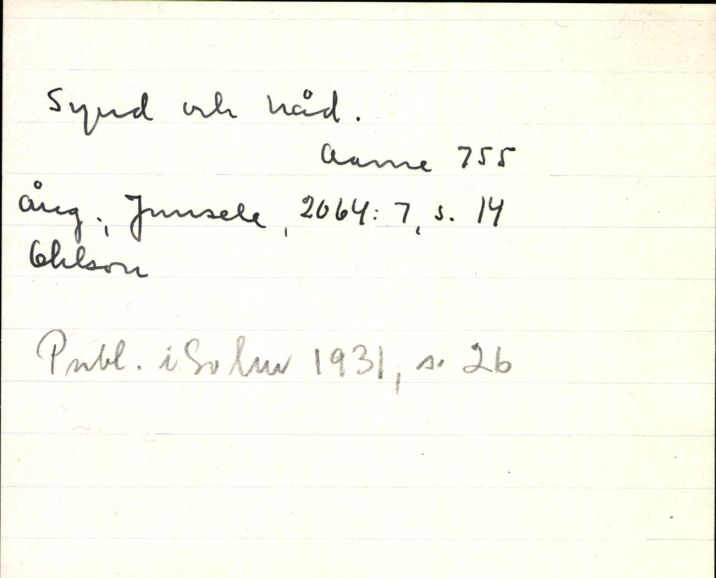 Synd och nåd.
Aarne 755
Ång., Junsele, 2064: 7, s. 14
Ohlson
Publ. i 1931, s. 26